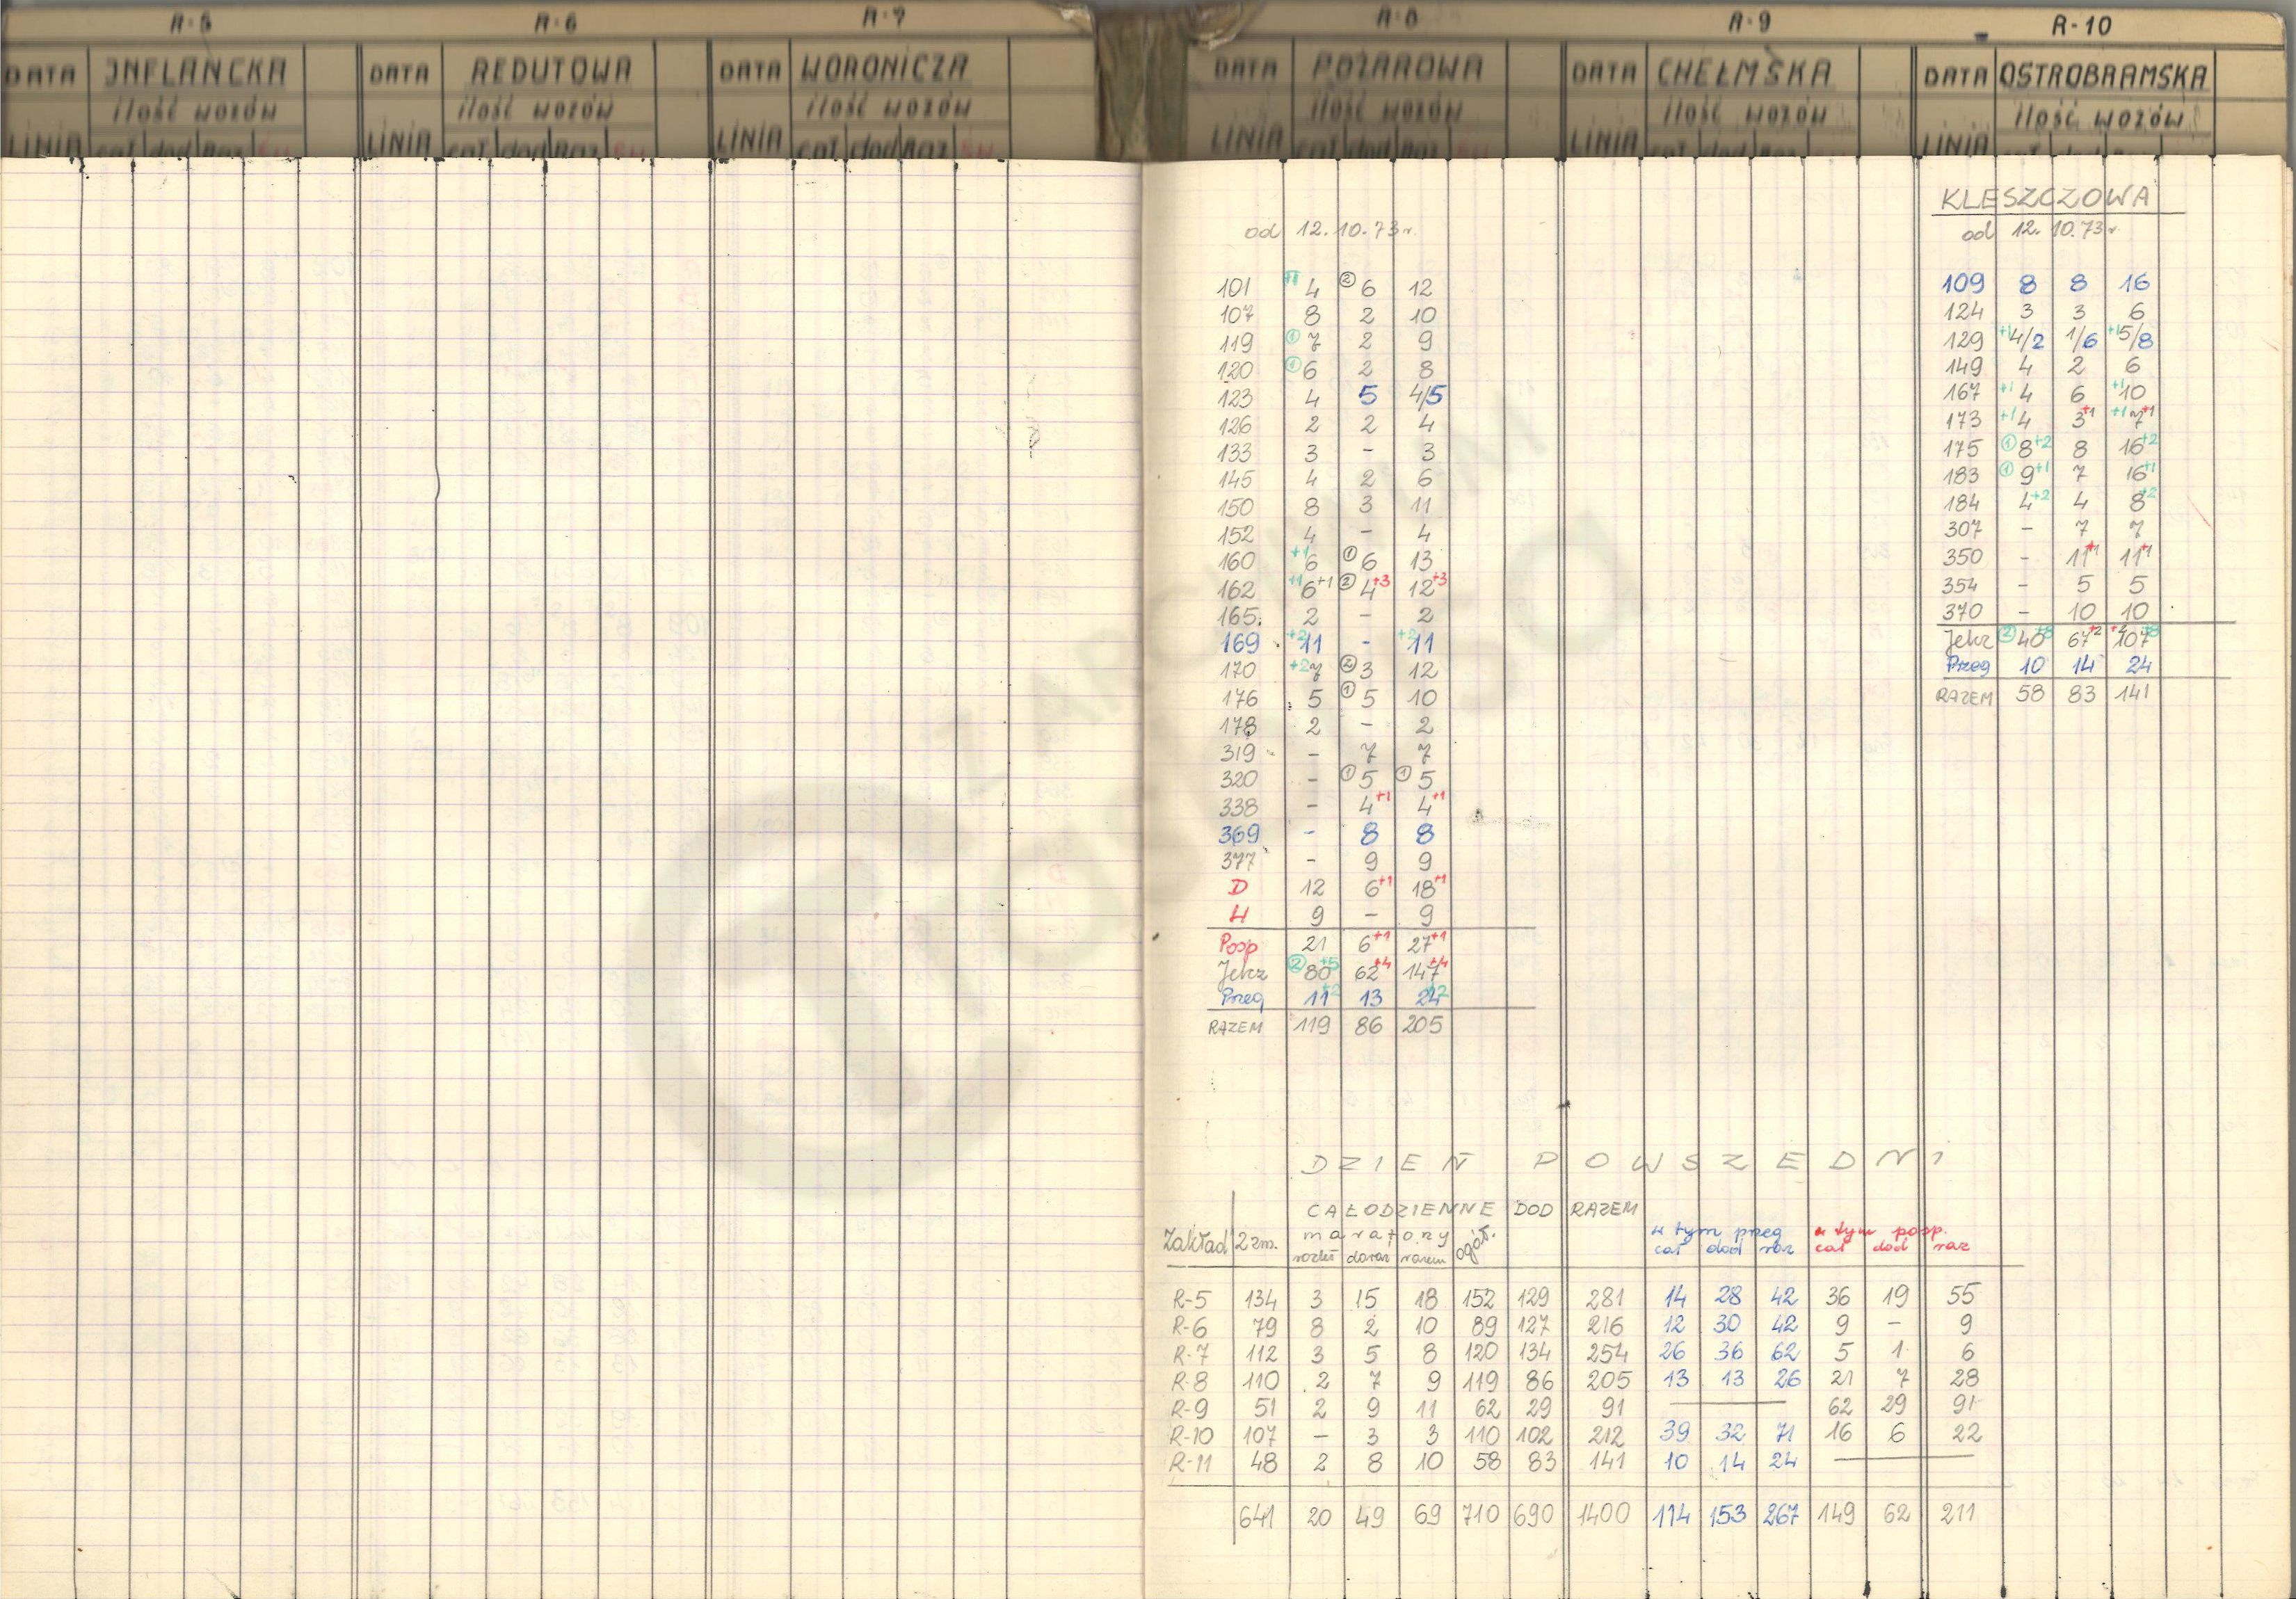 R-5 R-6 R-7 R-8 R-9 R-10
DATA INFLANCKA DATA REDUTOWA DATA WORONICZA DATA POŻAROWA DATA CHEŁMSKA DATA OSTROBRAMSKA
ilość wozów ilość wozów ilość wozów ilość wozów ilość wozów ilość wozów
LINIA cał dod Raz LINIA cał dod Raz LINIA cał dod Raz LINIA cał dod Raz LINIA cał dod Raz LINIA
od 12.10.73 r.
101 +1 4 ② 6 12
107 8 2 10
119 ① 7 2 9
120 ① 6 2 8
123 4 5 4/5
126 2 2 4
133 3 - 3
145 4 2 6
150 8 3 11
152 4 - 4
160 +1 6 ① 6 13
162 +1 6 +1 ② 4 +3 12 +3
165. 2 - 2
169 +2 11 - +2 11
170 +2 7 ② 3 12
176 5 ① 5 10
178 2 - 2
319 - 7 7
320 - ① 5 ① 5
338 - 4 +1 4 +1
369 - 8 8
377 - 9 9
D 12 6 +1 18 +1
H 9 - 9
Posp 21 6 +1 27 +1
Jelcz ② 80 +5 62 +4 147 +4
Przeg 11 +2 13 24 +2
RAZEM 119 86 205
KLESZCZOWA
od 12.10.73 r.
109 8 8 16
124 3 3 6
129 +1 4/2 1/6 +1 5/8
149 4 2 6
167 +1 4 6 +1 10
173 +1 4 3 +1 +1 7 +1
175 ① 8 +2 8 16 +2
183 ① 9 +1 7 16 +1
184 4 +2 4 8 +2
307 - 7 7
350 - 11 +1 11 +1
354 - 5 5
370 - 10 10
Jelcz ② 40 +8 67 +2 +2 107 +8
Przeg 10 14 24
RAZEM 58 83 141
DZIEŃ POWSZEDNI
CAŁODZIENNE DOD RAZEM
Zakład 2 zm. maratony ogół. w tym przeg w tym posp.
razem cał dod raz cał dod raz
R-5 134 3 15 18 152 129 281 14 28 42 36 19 55
R-6 79 8 2 10 89 127 216 12 30 42 9 - 9
R-7 112 3 5 8 120 134 254 26 36 62 5 1 6
R-8 110 2 7 9 119 86 205 13 13 26 21 7 28
R-9 51 2 9 11 62 29 91 — 62 29 91
R-10 107 - 3 3 110 102 212 39 32 71 16 6 22
R-11 48 2 8 10 58 83 141 10 14 24 —
641 20 49 69 710 690 1400 114 153 267 149 62 211